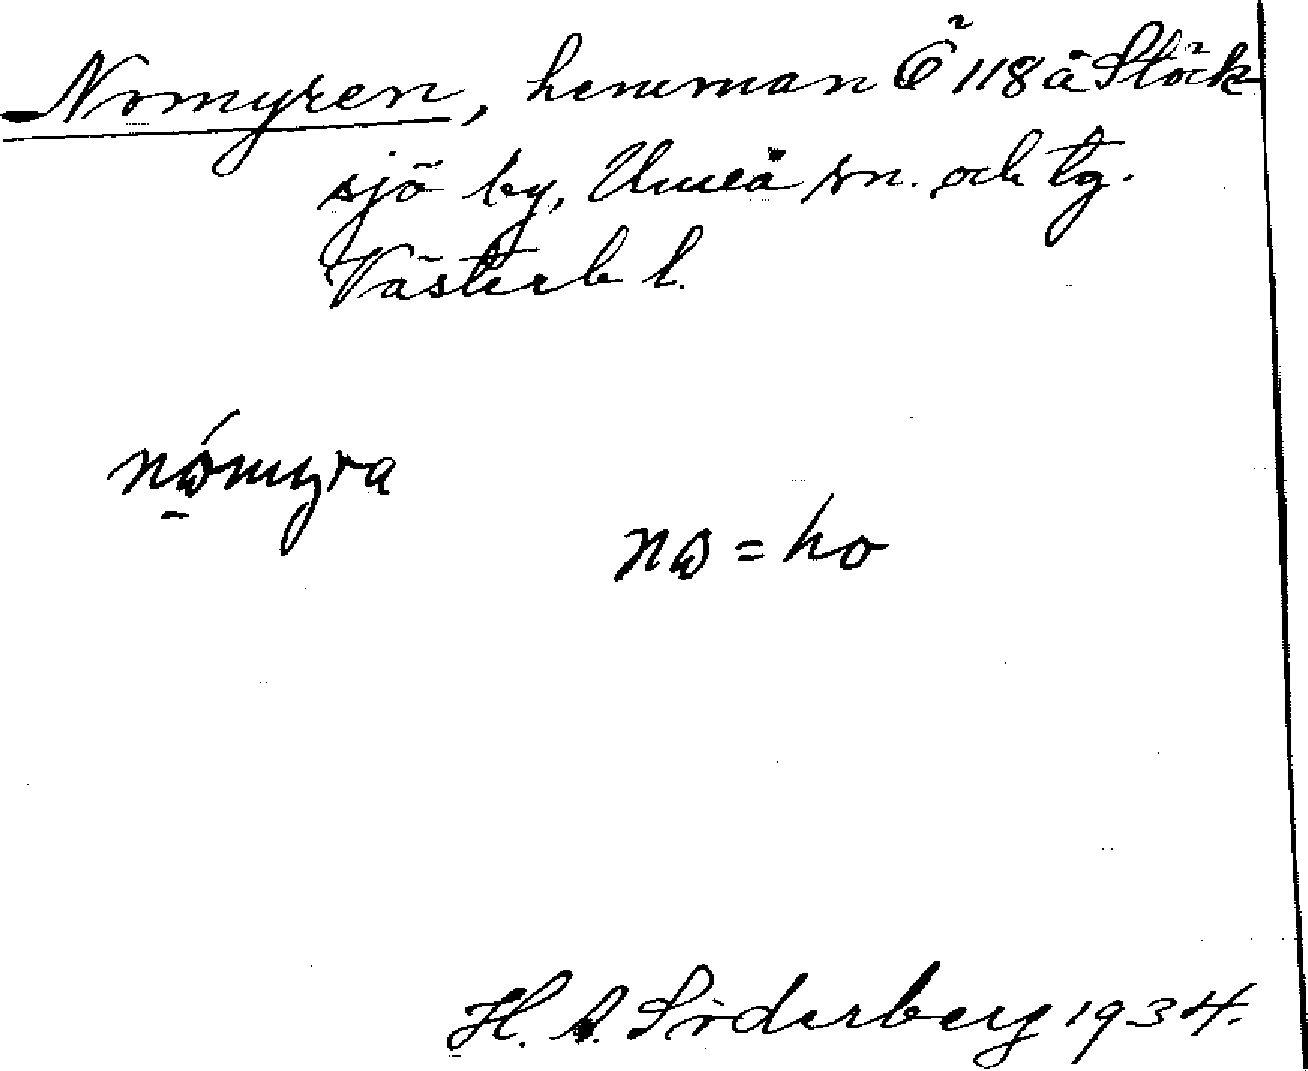 Nomyren, hemman Ö 118 å Stöck
sjö by, Umeå sn. och tg.
Västerb l.
nɷ́myra
nɷ = ho
H. A. Söderberg 1934.